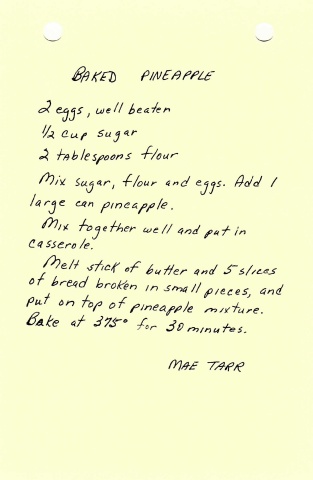 BAKED PINEAPPLE
2 eggs, well beaten
1/2 cup sugar
2 tablespoons flour
Mix sugar, flour and eggs. Add 1
large can pineapple.
Mix together well and put in
casserole.
Melt stick of butter and 5 slices
of bread broken in small pieces, and
put on top of pineapple mixture.
Bake at 375° for 30 minutes.
MAE TARR